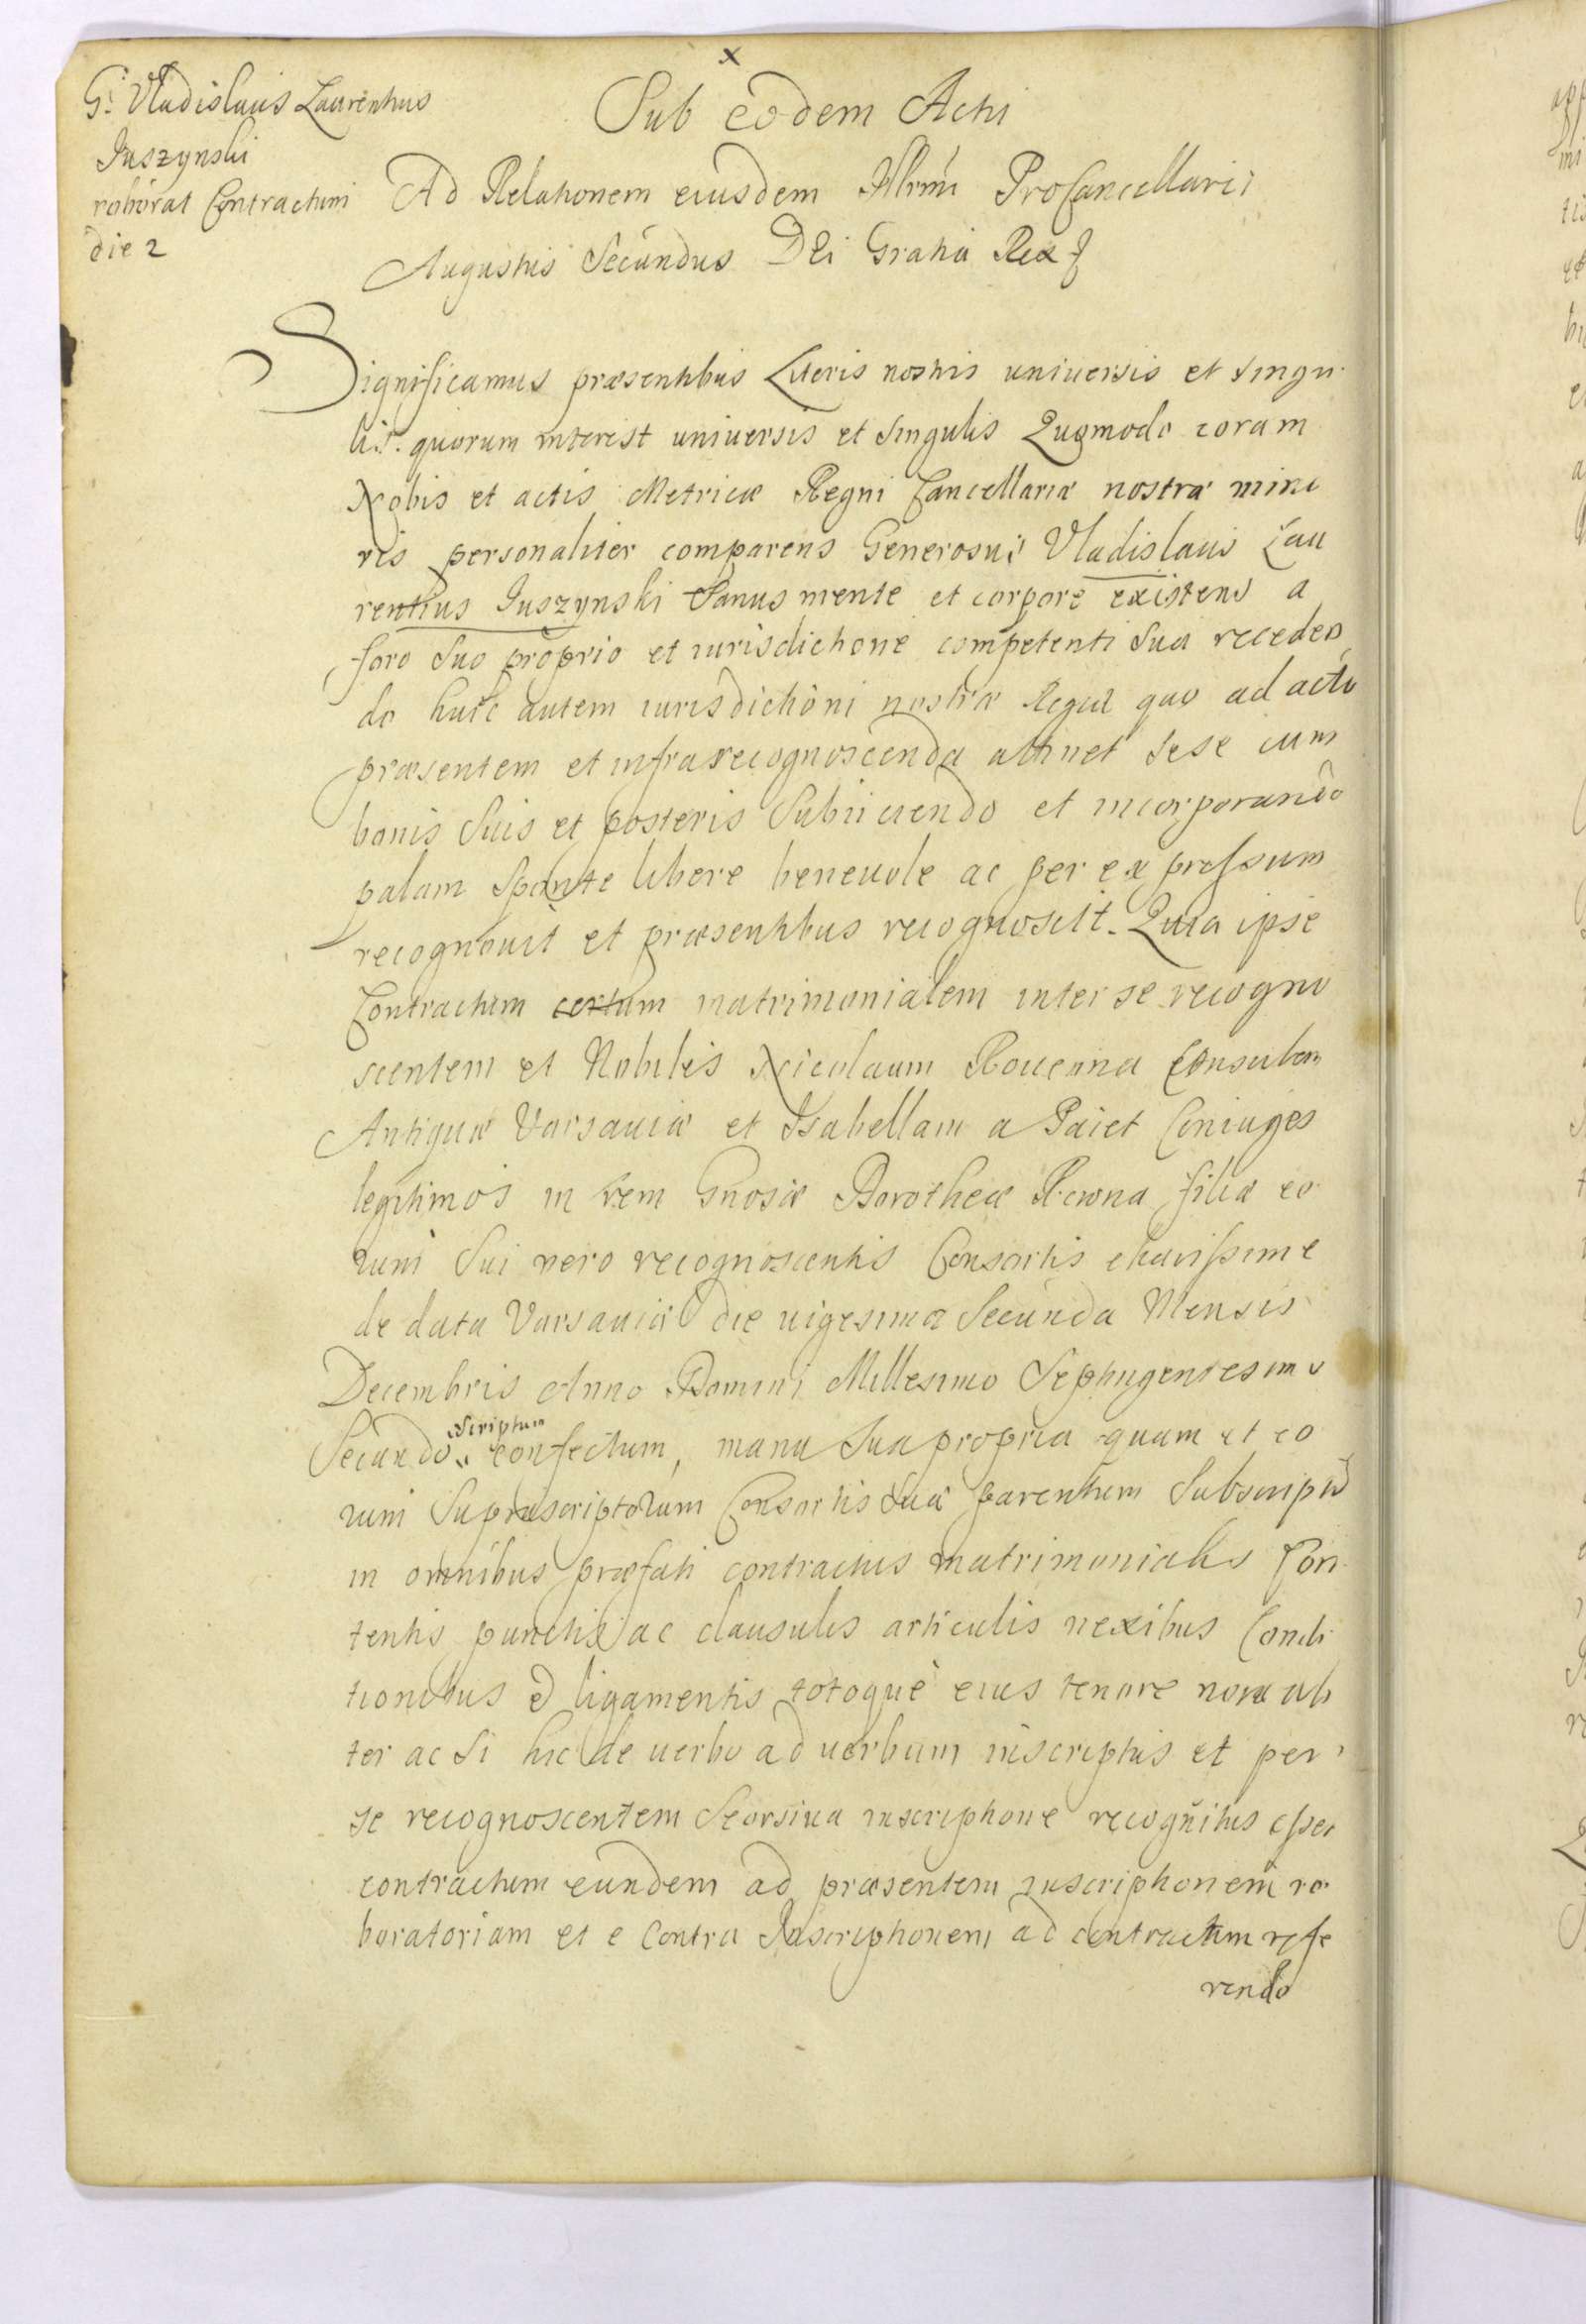 x
G: Vladislaus Laurentius
Juszynski
roborat Contractum
die 2
Sub eodem Actu
Ad Relationem eiusdem Illrmi ProCancellarii
Augustus Secundus Dei Gratia Rex
Significamus præsentibus Literis nostris universis et singu
lis quorum interest universis et singulis Quomodo coram
Nobis et actis Metricæ Regni Cancellariæ nostræ mino
ris personaliter comparens Generosus Vladislaus Lau
rentius Juszynski Sanus mente et corpore existens a
foro Suo proprio et iurisdictione competenti Sua receden
do huic autem iurisdictioni nostræ Regiæ quo ad actu
præsentem et infrarecognoscenda attinet Sese cum
bonis Suis et posteris Subiiciendo et incorporando
palam Sponte libere benevole ac per expressum
recognovit et præsentibus recognoscit. Quia ipse
Contractum certum matrimonialem inter se recogno
scentem et Nobiles Nicolaum Consulem
Antiquæ Varsaviæ et Isabellam a Paiet Coniuges
legitimos in rem Gnosæ Dorotheæ filiæ eo
rum Sui vero recognoscentis Consortis charissimæ
de data Varsaviæ die vigesima Secunda Mensis
Decembris Anno Domini Millesimo Septingentesimo
Scriptum
Secundo confectum, manu Sua propria quam et eo
rum Supræscriptorum Consortis Suæ parentum Subscriptu
in omnibus præfati contractus matrimonialis Con
tentis punctis ac clausulis articulis nexibus Condi
tionibus et ligamentis totoque eius tenore non ali
ter ac Si hic de verbo ad verbum inscriptus et per
se recognoscentem Seorsiva inscriptione recognitus esset
contractum eundem ad præsentem inscriptionem ro
boratoriam et e Contra Inscriptionem ad contractum refe
rendo